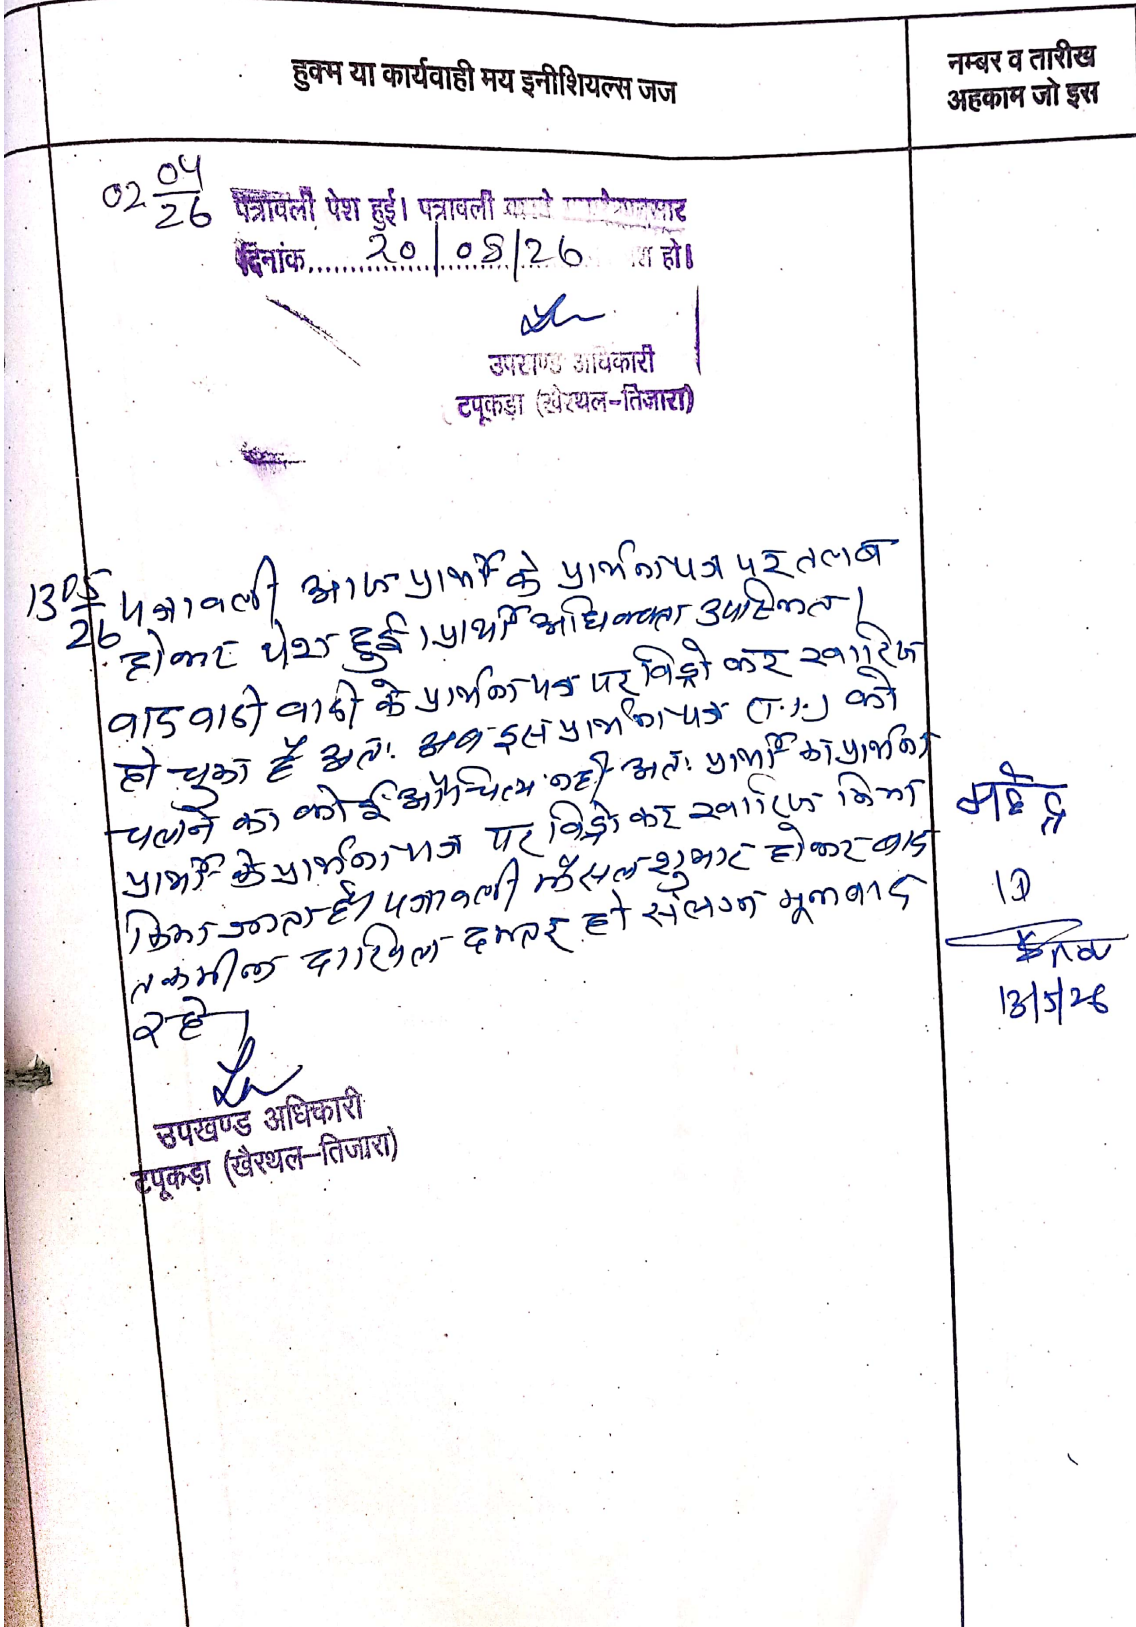 हुक्म या कार्यवाही मय इनीशियल्स जज
नम्बर व तारीख
अहकाम जो इस
02 04/26
पत्रावली पेश हुई। पत्रावली
दिनांक.... 20/08/26 हो।
उपखण्ड अधिकारी
टपूकड़ा (खैरथल-तिजारा)
13 05/26 पत्रावली आज प्रार्थी के प्रार्थना पत्र पर तलब
होकर पेश हुई। प्रार्थी अधिवक्ता उपस्थित।
वाद वादी के प्रार्थना पत्र पर विड्रो कर खारिज
हो चुका है अतः अब इस प्रार्थना पत्र (T.I.) को
चलाने का कोई औचित्य नहीं अतः प्रार्थी का प्रार्थना
प्रार्थी के प्रार्थना पत्र पर विड्रो कर खारिज किया
किया जाता है। पत्रावली फैसल शुमार होकर बाद
तकमील दाखिल दफ्तर हो संलग्न मूलवाद
रहे।
उपखण्ड अधिकारी
टपूकड़ा (खैरथल-तिजारा)
महेन्द्र
13/5/26